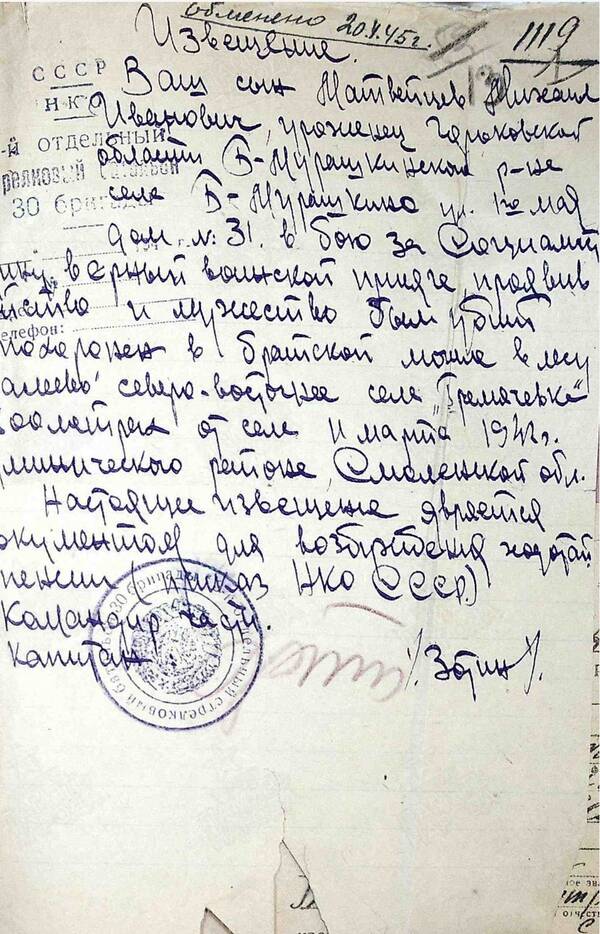 обменено 20.V.45г.
1119
13
Извещение.
СССР
НК
-й отдельный
релковый батальон
30 бригады
телефон:
Ваш сын Матвейцев Михаил
Иванович, уроженец Горьковской
области Б-Мурашкинского р-на
село Б-Мурашкино ул. 1го мая
дом № 31. в бою за Социалист
ину. верный воинской присяге, проявив
йство и мужество был убит
похоронен в братской могиле в лесу
северо-восточнее села "Гремячевка"
метрах от села 11 марта 1942г.
минического района, Смоленской обл.
Настоящее извещение является
окументом для возбуждения ходатай
пенсии (приказ НКО СССР)
Командир части.
Капитан
/Зотин/.